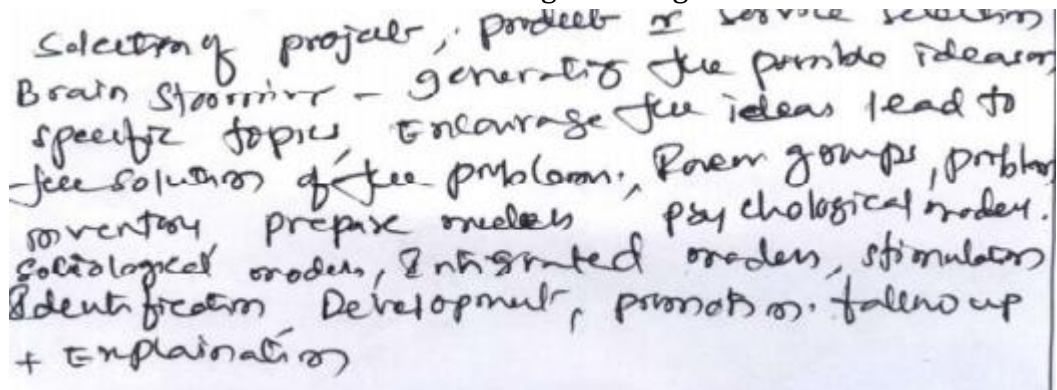 Selection of project, product or service selection
Brain Stooming - generating the possible ideas on
specific topics, Encourage the ideas lead to
the solution of the problem., groups, problem
inventory, prepare models psychological model.
Sociological models, Integrated models, stimulation
Identification Development, promotion. follow up
+ Explaination